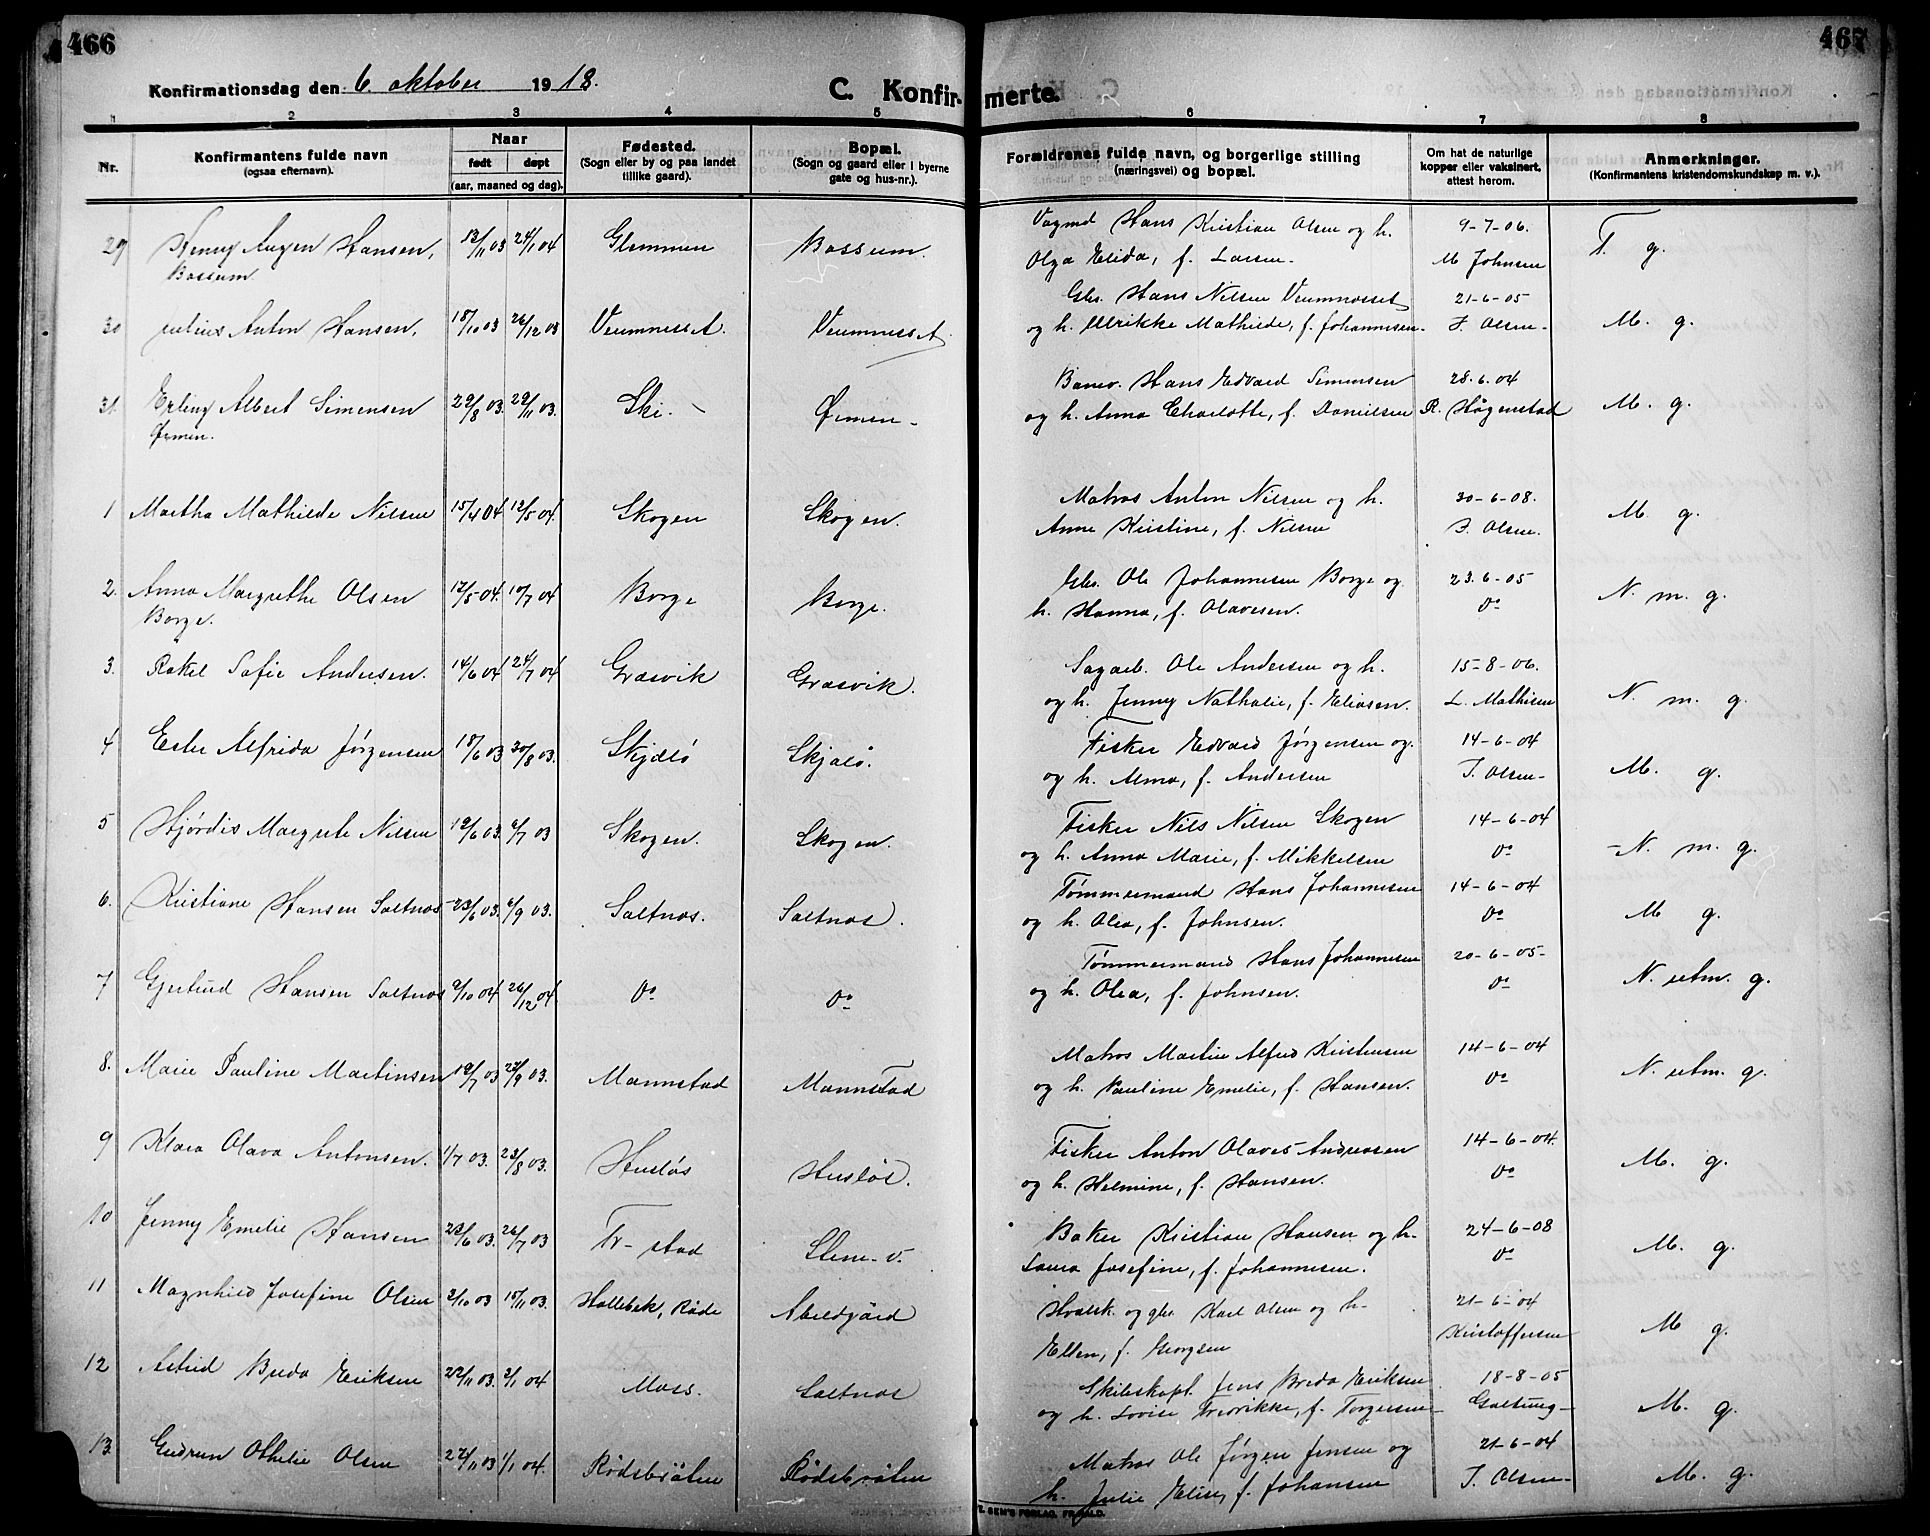 466
467
Konfirmationsdag den 6. oktober 1918.
C. Konfirmerte.
1 2 3 4 5 6 7 8
Nr.
Konfirmantens fulde navn
(ogsaa efternavn).
Naar
født døpt
(aar, maaned og dag).
Fødested.
(Sogn eller by og paa landet
tillike gaard).
Bopæl.
(Sogn og gaard eller i byerne
gate og hus-nr.).
Forældrenes fulde navn, og borgerlige stilling
(næringsvei) og bopæl.
Om hat de naturlige
kopper eller vaksinert,
attest herom.
Anmerkninger.
(Konfirmantens kristendomskundskap m. v.).
29 Henny Hansen, 13/11 03 24/1 04 Glemmen Bossum. Hans Kristian Olsen og h. 9-7-06.
Bossum. Olga Elida, f. Larsen. M Johnsen T. g.
30 Julius Anton Hansen, 18/10 03 26/12 03 Veumnesset. Veumnesset. Gbr. Hans Nilsen Veumnesset 21-6-05
og h. Ulrikke Mathilde, f. Johannesen. J. Olsen M. g.
31. Erling Albert Simensen 29/8 03. 29/11 03. Ski. Ørmen Banev. Hans Edvard Simensen 28.6.04
Ørmen. og h. Anna Charlotte, f. Danielsen R. Hågenstad M. g.
1 Martha Mathilde Nilsen 15/4 04 12/5 04. Skogen Skogen. Matros Anton Nilsen og h. 30-6-08.
Anne Kristine, f. Nilsen J. Olsen. M. g.
2. Anna Margrethe Olsen 12/5 04. 10/7 04 Borge Borge. Gbr. Ole Johannesen Borge og 23.6-05
Borge. h. Hanna, f. Olavesen. Do N. m. g.
3. Rakel Sofie Andersen. 14/6 04 24/7 04 Græsvik Græsvik. Sagarb. Ole Andersen og h. 15-8-06.
og h. Jenny Nathalie, f. Eliasen. L. Mathisen N. m. g.
4 Ester Alfrida Jørgensen 18/6 03 30/8 03. Skjælø Skjælø. Fisker Edvard Jørgensen og 14-6-04
og h. Alma, f. Andersen J. Olsen M. g.
5 Hjørdis Margrete Nilsen 19/6 03. 6/7 03 Skogen. Skogen. Fisker Nils Nilsen Skogen 14-6-04
og h. Anna Marie, f. Mikkelsen Do N. m. g.
6. Kristiane Hansen Saltnes 23/6 03. 6/9 03. Saltnes. Saltnes. Tømmermand Hans Johannesen 14-6-04
og h. Olea, f. Johnsen. Do M g.
7 Gjertrud Hansen Saltnes 9/10 04 26/12 04 Do Do Tømmermand Hans Johannesen 20-6-05-
og h. Olea, f. Johnsen. Do N. utm. g.
8. Marie Pauline Martinsen 19/7 03 27/9 03. Mannstad Mannstad Matros Martin Alfred Kristensen 14-6-04
og h. Pauline Emelie, f. Hansen. Do N. utm. g.
9 Klara Olava Antonsen. 1/7 03. 23/8 03. Husløs Husløs. Fisker Anton Olaves Andreasen 14-6-04.
og h. Helmine, f. Hansen. Do M. g.
10 Jenny Emelie Hansen 23/6 03. 26/7 03 Fr-stad Slene-v. Baker Kristian Hansen og h. 24-6-08
Laura Josefine, f. Johannesen. Do M. g.
11 Magnhild Josefine Olsen 2/10 03 15/11 03. Hallebek, Råde Abildgård Hvalsk. og gbr. Karl Olsen og h. 21-6-04
Ellen, f. Georgsen Kristoffersen M g.
12 Astrid Breda Eriksen 22/11 03. 2/1 04 Moss. Saltnes Skibskapt. Jens Breda Eriksen 18-8-05
og h. Lovise Fredrikke, f. Torgersen Galtung M. g.
13. Gudrun Othelie Olsen 27/11 03 1/1 04. Rødsbråten Rødsbråten Matros Ole Jørgen Jensen og 21-6-04
h. Julie Elise, f. Johansen J. Olsen M. g.